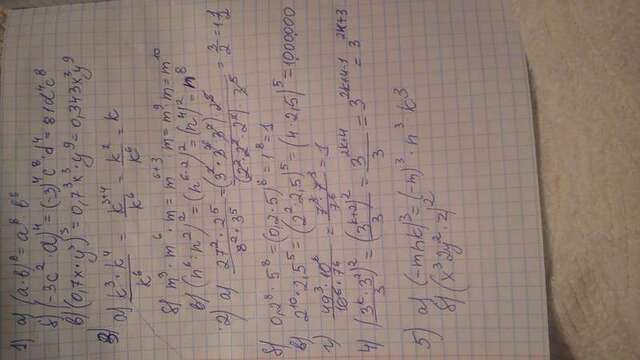 1) а) (a·b)⁸ = a⁸ b⁸
б) (-3c²·d)⁴ = (-3)⁴ c⁸·d⁴ = 81d⁴c⁸
в) (0,7x·y³)³ = 0,7³x³·y⁹ = 0,343x³y⁹
3) а) k³·k⁴/k⁶ = k³⁺⁴/k⁶ = k⁷/k⁶ = k
б) m³·m⁶·m = m⁶⁺³·m = m⁹·m = m¹⁰
в) (n⁶:n²)² = (n⁶⁻²)² = (n⁴)² = n⁸
2) а) 27²·2⁵/8²·3⁵ = (3²·3²·3²)·2⁵/(2²·2²·2²)·3⁵ = 3/2 = 1 1/2
б) 0,2⁸·5⁸ = (0,2·5)⁸ = 1⁸ = 1
в) 2¹⁰·2,5⁵ = (2²·2,5)⁵ = (4·2,5)⁵ = 100000
г) 49³·10⁶/10⁶·7⁶ = 7³·7³/7⁶ = 1
4) (3ᵏ·3²)²/3 = (3ᵏ⁺²)²/3 = 3²ᵏ⁺⁴/3 = 3²ᵏ⁺⁴⁻¹ = 3²ᵏ⁺³
5) а) (-mnk)³ = (-m)³·n³·k³
б) (x³2y²·z)²